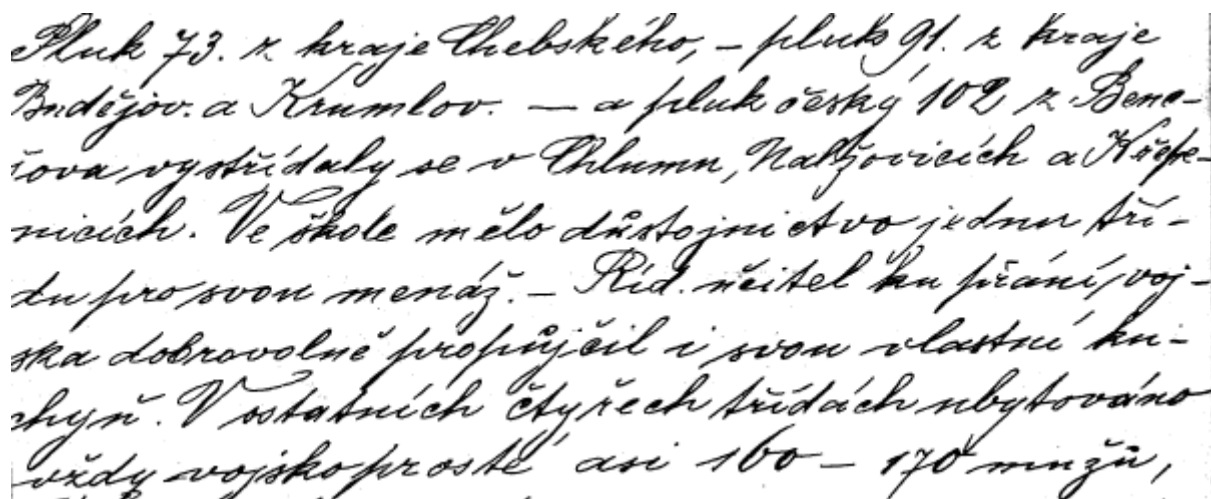 Pluk 73. z kraje Chebského, – pluk 91. z kraje
Budějov. a Krumlov. — a pluk český 102 z Bene-
šova vystřídaly se v Chlumu, Nalžovicích a Křepe-
nicích. Ve škole mělo důstojnictvo jednu tří-
du pro svou menáž. – Říd. učitel ku přání voj-
ska dobrovolně propůjčil i svou vlastní ku-
chyň. V ostatních čtyřech třídách ubytováno
vždy vojsko prosté asi 160 – 170 mužů,